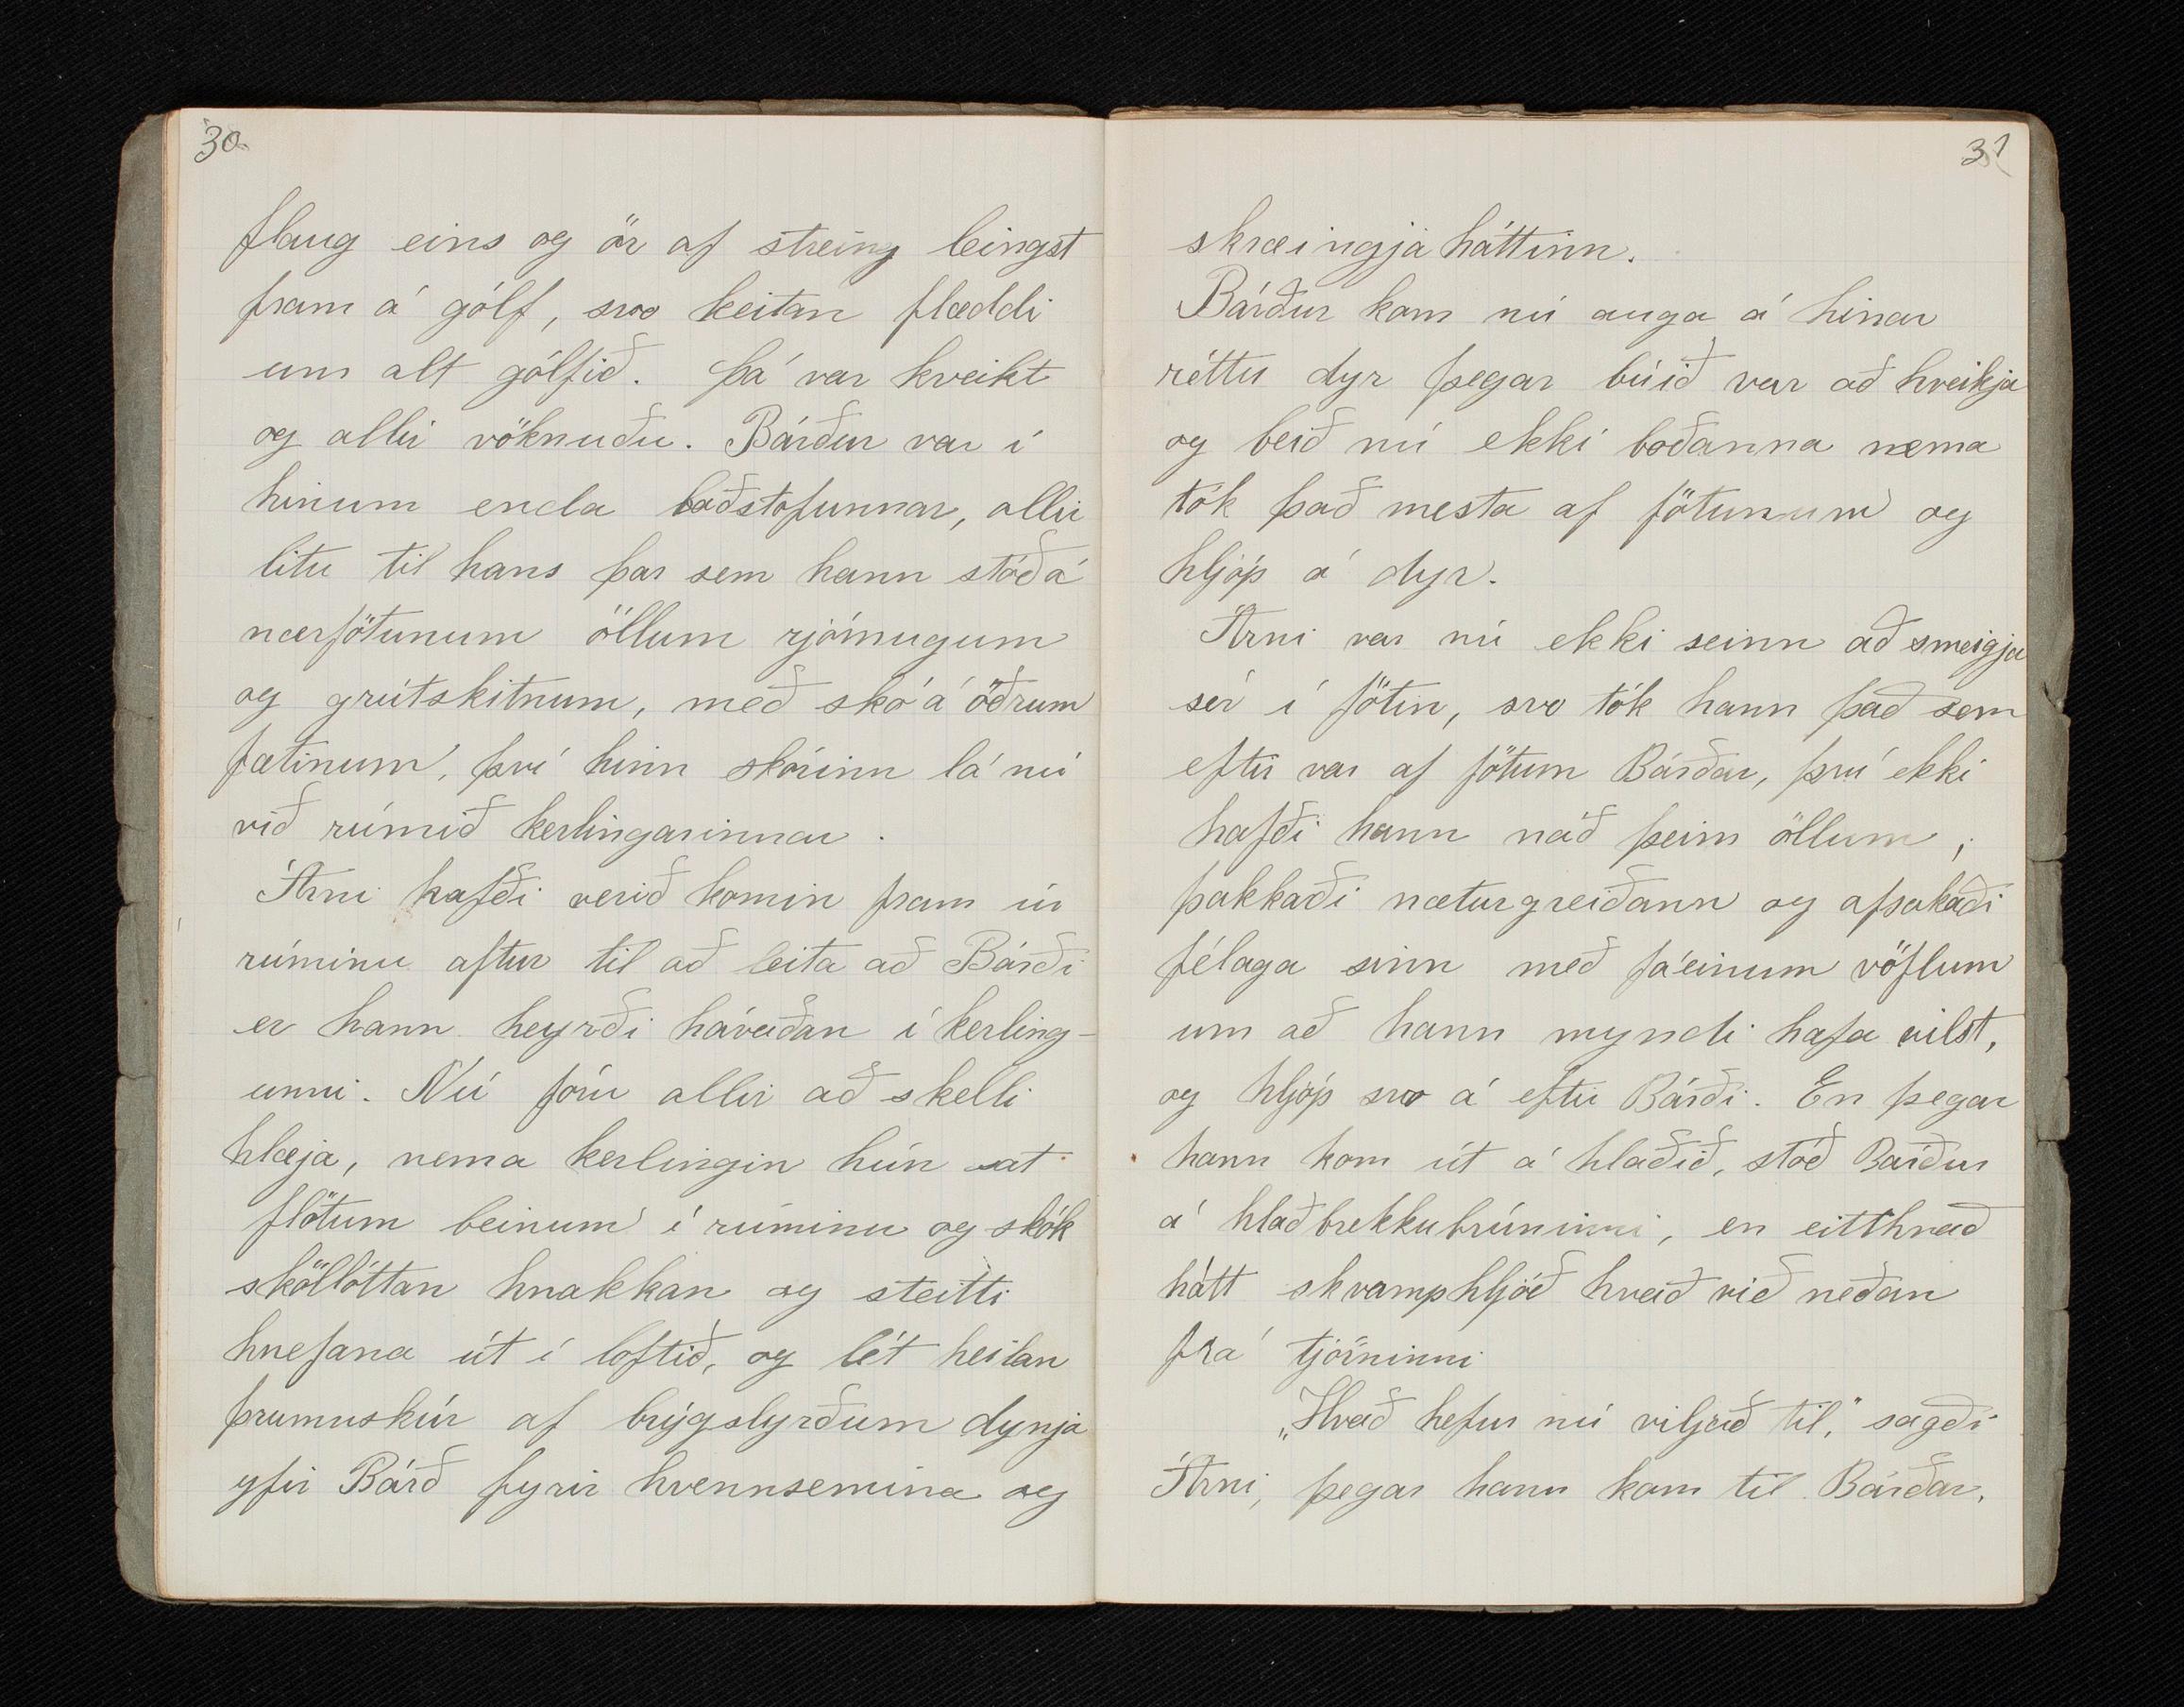 30.
flaug eins og ör af streing leingst
fram á gólf, svo keitan flæddi
um alt gólfið. Þá var kveikt
og allir vöknuðu. Bárður var í
hinum enda baðstofunnar, allir
litu til hans þar sem hann stóð á
nærfötunum öllum rjómugum
og grútskitnum, með skó á öðrum
fætinum, því hinn skórinn lá nú
við rúmið kerlingarinnar.
Árni hafði verið komin fram úr
rúminu aftur til að leita að Bárði
er hann heyrði háveiðan í kerling-
unni. Nú fóru allir að skelli
hlæja, nema kerlingin hún sat
flötum beinum í rúminu og skók
sköllóttan hnakkan og steitti
hnefana út í loftið, og lét heilan
þrumuskúr af brýgslyrðum dynja
yfir Bárð fyrir kvennsemina og
31
skræingjaháttinn.
Bárður kom nú auga á hinar
réttu dyr þegar búið var að kveikja
og beið nú ekki boðanna nema
tók það mesta af fötunum og
hljóp á dyr.
Árni var nú ekki seinn að smeigja
sér í fötin, svo tók hann það sem
eftir var af fötum Bárðar, því ekki
hafði hann náð þeim öllum,
þakkaði næturgreiðann og afsakaði
félaga sinn með fáeinum vöflum
um að hann myndi hafa vilst,
og hljóp svo á eftir Bárði. En þegar
hann kom út á hlaðið, stóð Bárður
á hlaðbrekkubrúninni, en eitthvað
hátt skvamphljóð kvað við neðan
frá tjörninni
„Hvað hefur nú viljað til," sagði
Árni, þegar hann kom til Bárðar.